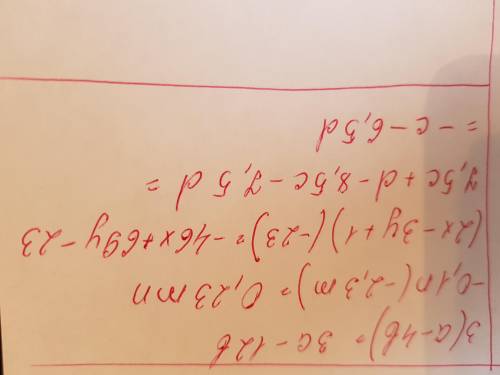 3(a-4b)=3a-12b
-0,1n(-2,3m)=0,23mn
(2x-3y+1)(-23)=-46x+69y-23
7,5c+d-8,5c-7,5d=
=-c-6,5d